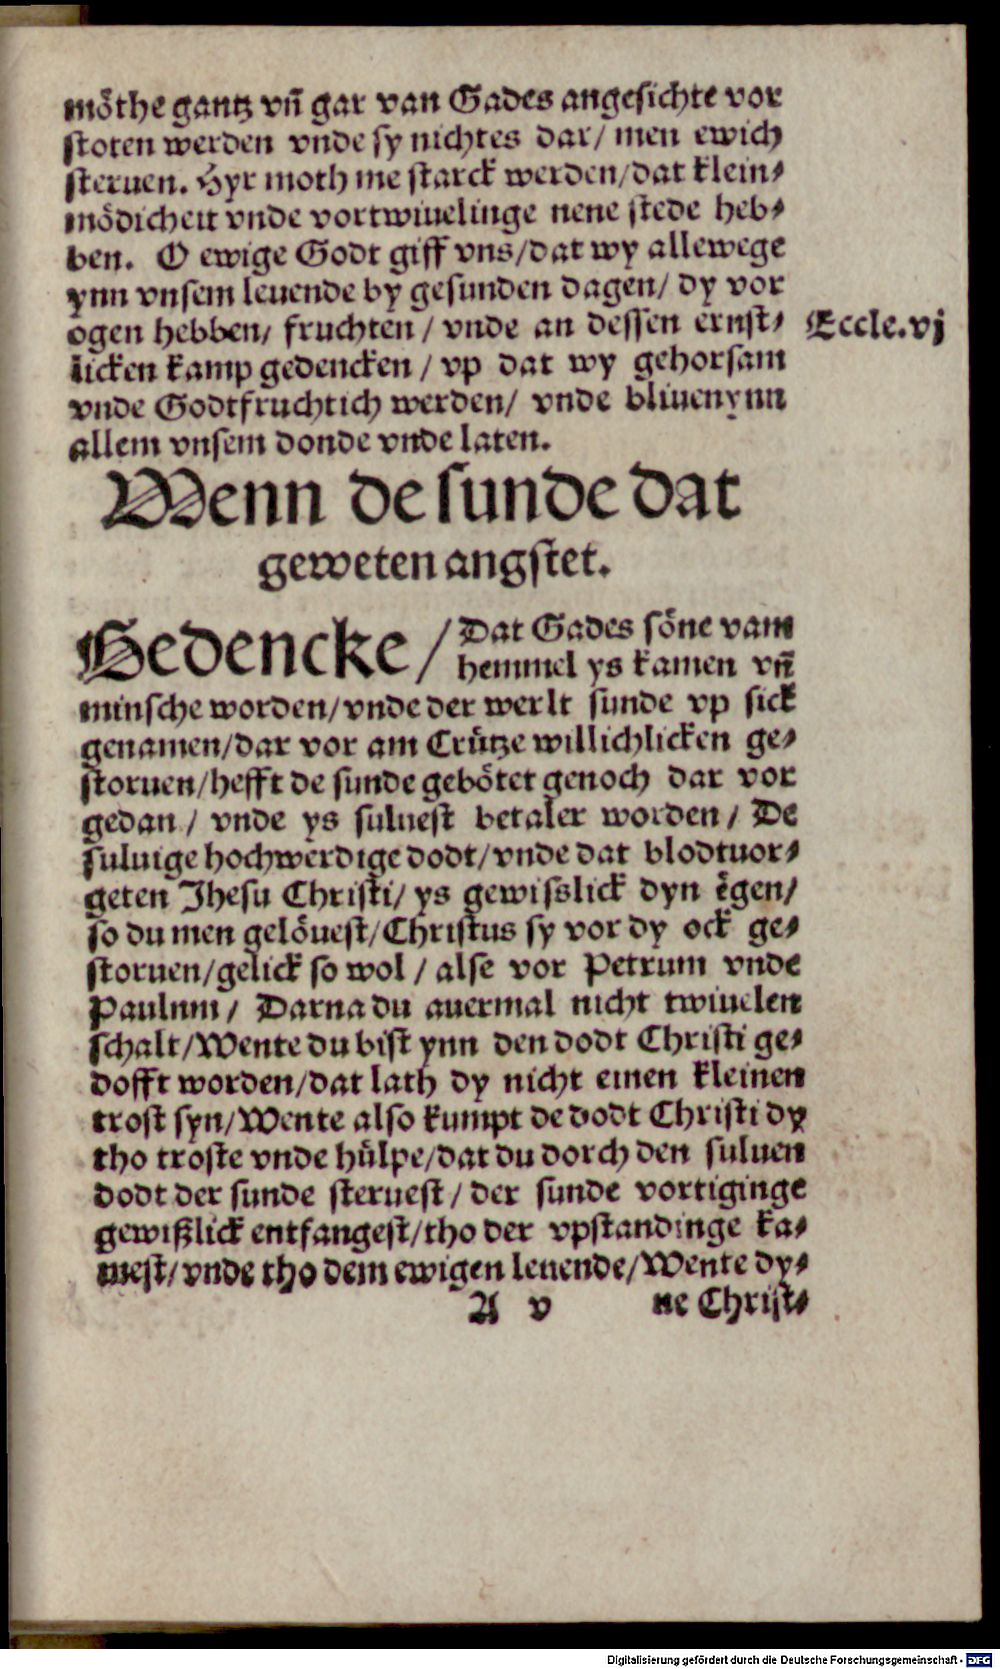 moͤthe gantz vñ gar van Gades angesichte vor
stoten werden vnde sy nichtes dar/ men ewich
steruen. Hyr moth me starck werden/dat klein⸗
moͤdicheit vnde vortwiuelinge nene stede heb⸗
ben. O ewige Godt giff vns/dat wy allewege
ynn vnsem leuende by gesunden dagen/ dy vor
ogen hebben/ fruchten/ vnde an dessen ernst⸗
Eccle.vj
licken kamp gedencken/ vp dat wy gehorsam
vnde Godtfruchtich werden/ vnde bliuen ynn
allem vnsem donde vnde laten.
Wenn de sunde dat
geweten angstet.
Gedencke/ Dat Gades soͤne vam
hemmel ys kamen vñ
minsche worden/vnde der werlt sunde vp sick
genamen/dar vor am Cruͤtze willichlicken ge⸗
storuen/hefft de sunde geboͤtet genoch dar vor
gedan/ vnde ys suluest betaler worden/ De
suluige hochwerdige dodt/vnde dat blodtuor⸗
geten Jhesu Christi/ ys gewisslick dyn eͤgen/
so du men geloͤuest/Christus sy vor dy ock ge⸗
storuen/gelick so wol/ alse vor Petrum vnde
Paulum/ Darna du auermal nicht twiuelen
schalt/Wente du bist ynn den dodt Christi ge⸗
dofft worden/dat lath dy nicht einen kleinen
trost syn/Wente also kumpt de dodt Christi dy
tho troste vnde huͤlpe/dat du dorch den suluen
dodt der sunde steruest/ der sunde vortiginge
gewißlick entfangest/tho der vpstandinge ka⸗
mest/vnde tho dem ewigen leuende/Wente dy⸗
A v ne Christ⸗
Digitalisierung gefördert durch die Deutsche Forschungsgemeinschaft - DFG